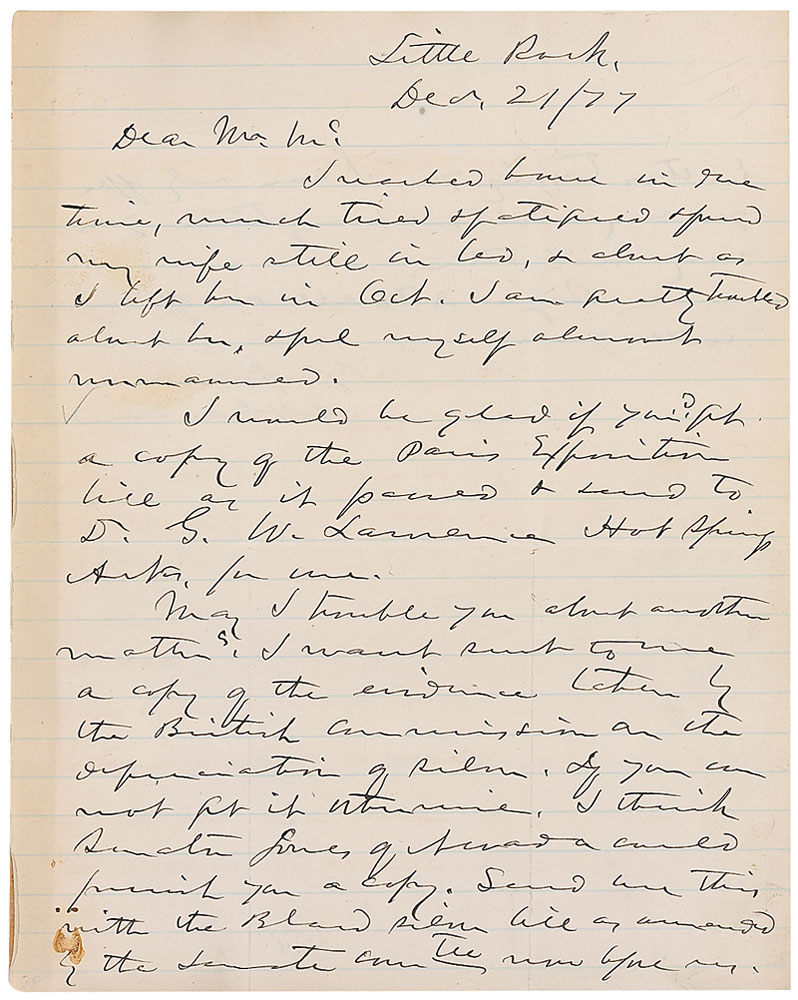 Little Rock,
Dec. 21/77
Dear Mr. Mc.
I reached home in due
time, much tired & fatigued & found
my wife still in bed, & about as
I left her in Oct. I am pretty troubled
about her, & feel myself almost
unmanned.
I would be glad if you'd get
a copy of the Paris Exposition
bill as it passed & send to
D. G. W. Lawrence Hot Springs
Arks, for me.
May I trouble you about another
matter. I want sent to me
a copy of the evidence taken by
the British Commission on the
depreciation of silver. If you can
not get it otherwise, I think
Senator Jones of Nevada could
furnish you a copy. Send me this
with the Bland silver bill as amended
by the Senate comtee now before us.